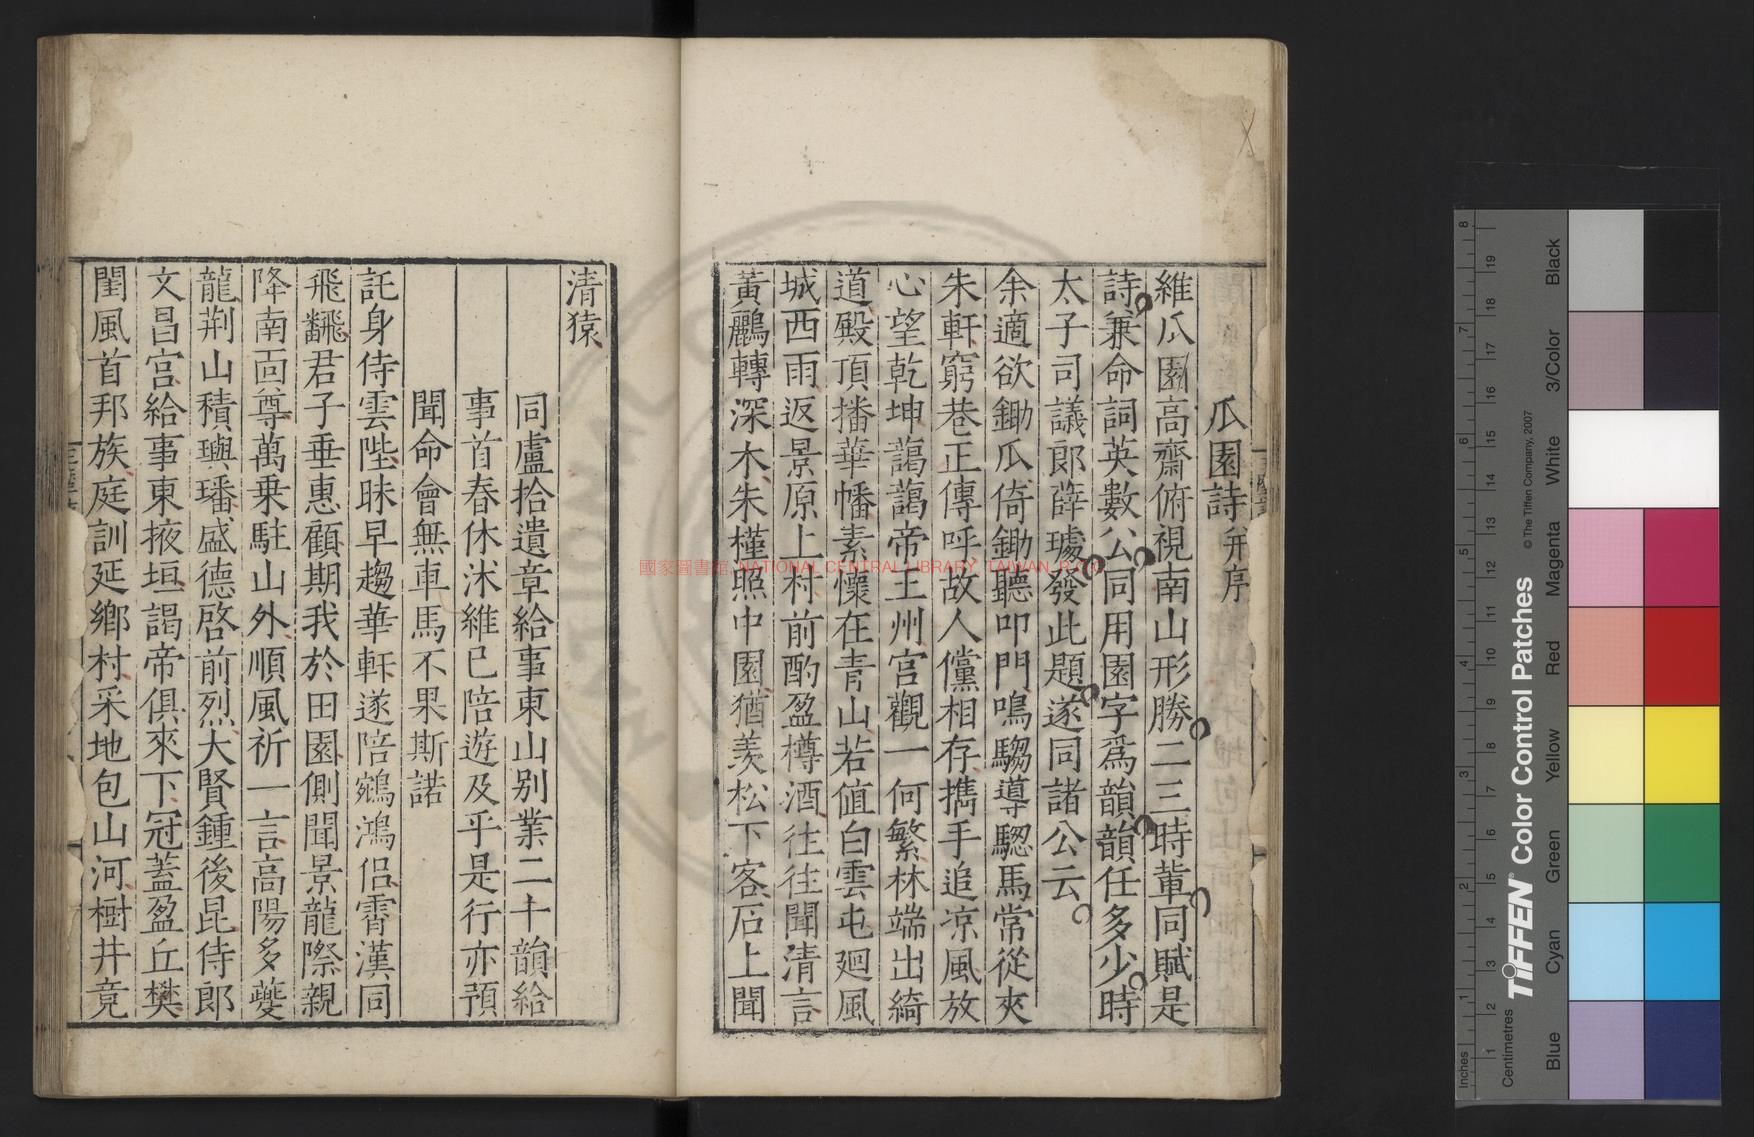 瓜園詩并序
維瓜園高齋俯視南山形勝二三時輩同賦是
詩兼命詞英數公同用園字爲韻韻任多少時
太子司議郎薛璩發此題遂同諸公云
余適欲鋤瓜倚鋤聽叩門鳴騶導驄馬常從夾
朱軒窮巷正傳呼故人儻相存攜手追凉風放
心望乾坤藹藹帝王州宮觀一何繁林端出綺
道殿頂搖華幡素懷在青山若値白雲屯廻風
城西雨返景原上村前酌盈樽酒往往聞清言
黃鸝轉深木朱槿照中園猶羡松下客石上聞
清猿
同盧拾遺韋給事東山别業二十韻給
事首春休沐維已陪遊及乎是行亦預
聞命會無車馬不果斯諾
託身侍雲陛昧早趨華軒遂陪鵷鴻侶霄漢同
飛飜君子垂惠顧期我於田園側聞景龍際親
降南面尊萬乗駐山外順風祈一言高陽多夔
龍荆山積璵璠盛德啓前烈大賢鍾後昆侍郎
文昌宮給事東掖垣謁帝俱來下冠蓋盈丘樊
閨風首邦族庭訓延鄉村采地包山河樹井竟
國家圖書館, NATIONAL CENTRAL LIBRARY, TAIWAN, R.O.C
Inches
Centimetres
TIFFEN® Color Control Patches
© The Tiffen Company, 2007
Blue
Cyan
Green
Yellow
Red
Magenta
White
3/Color
Black